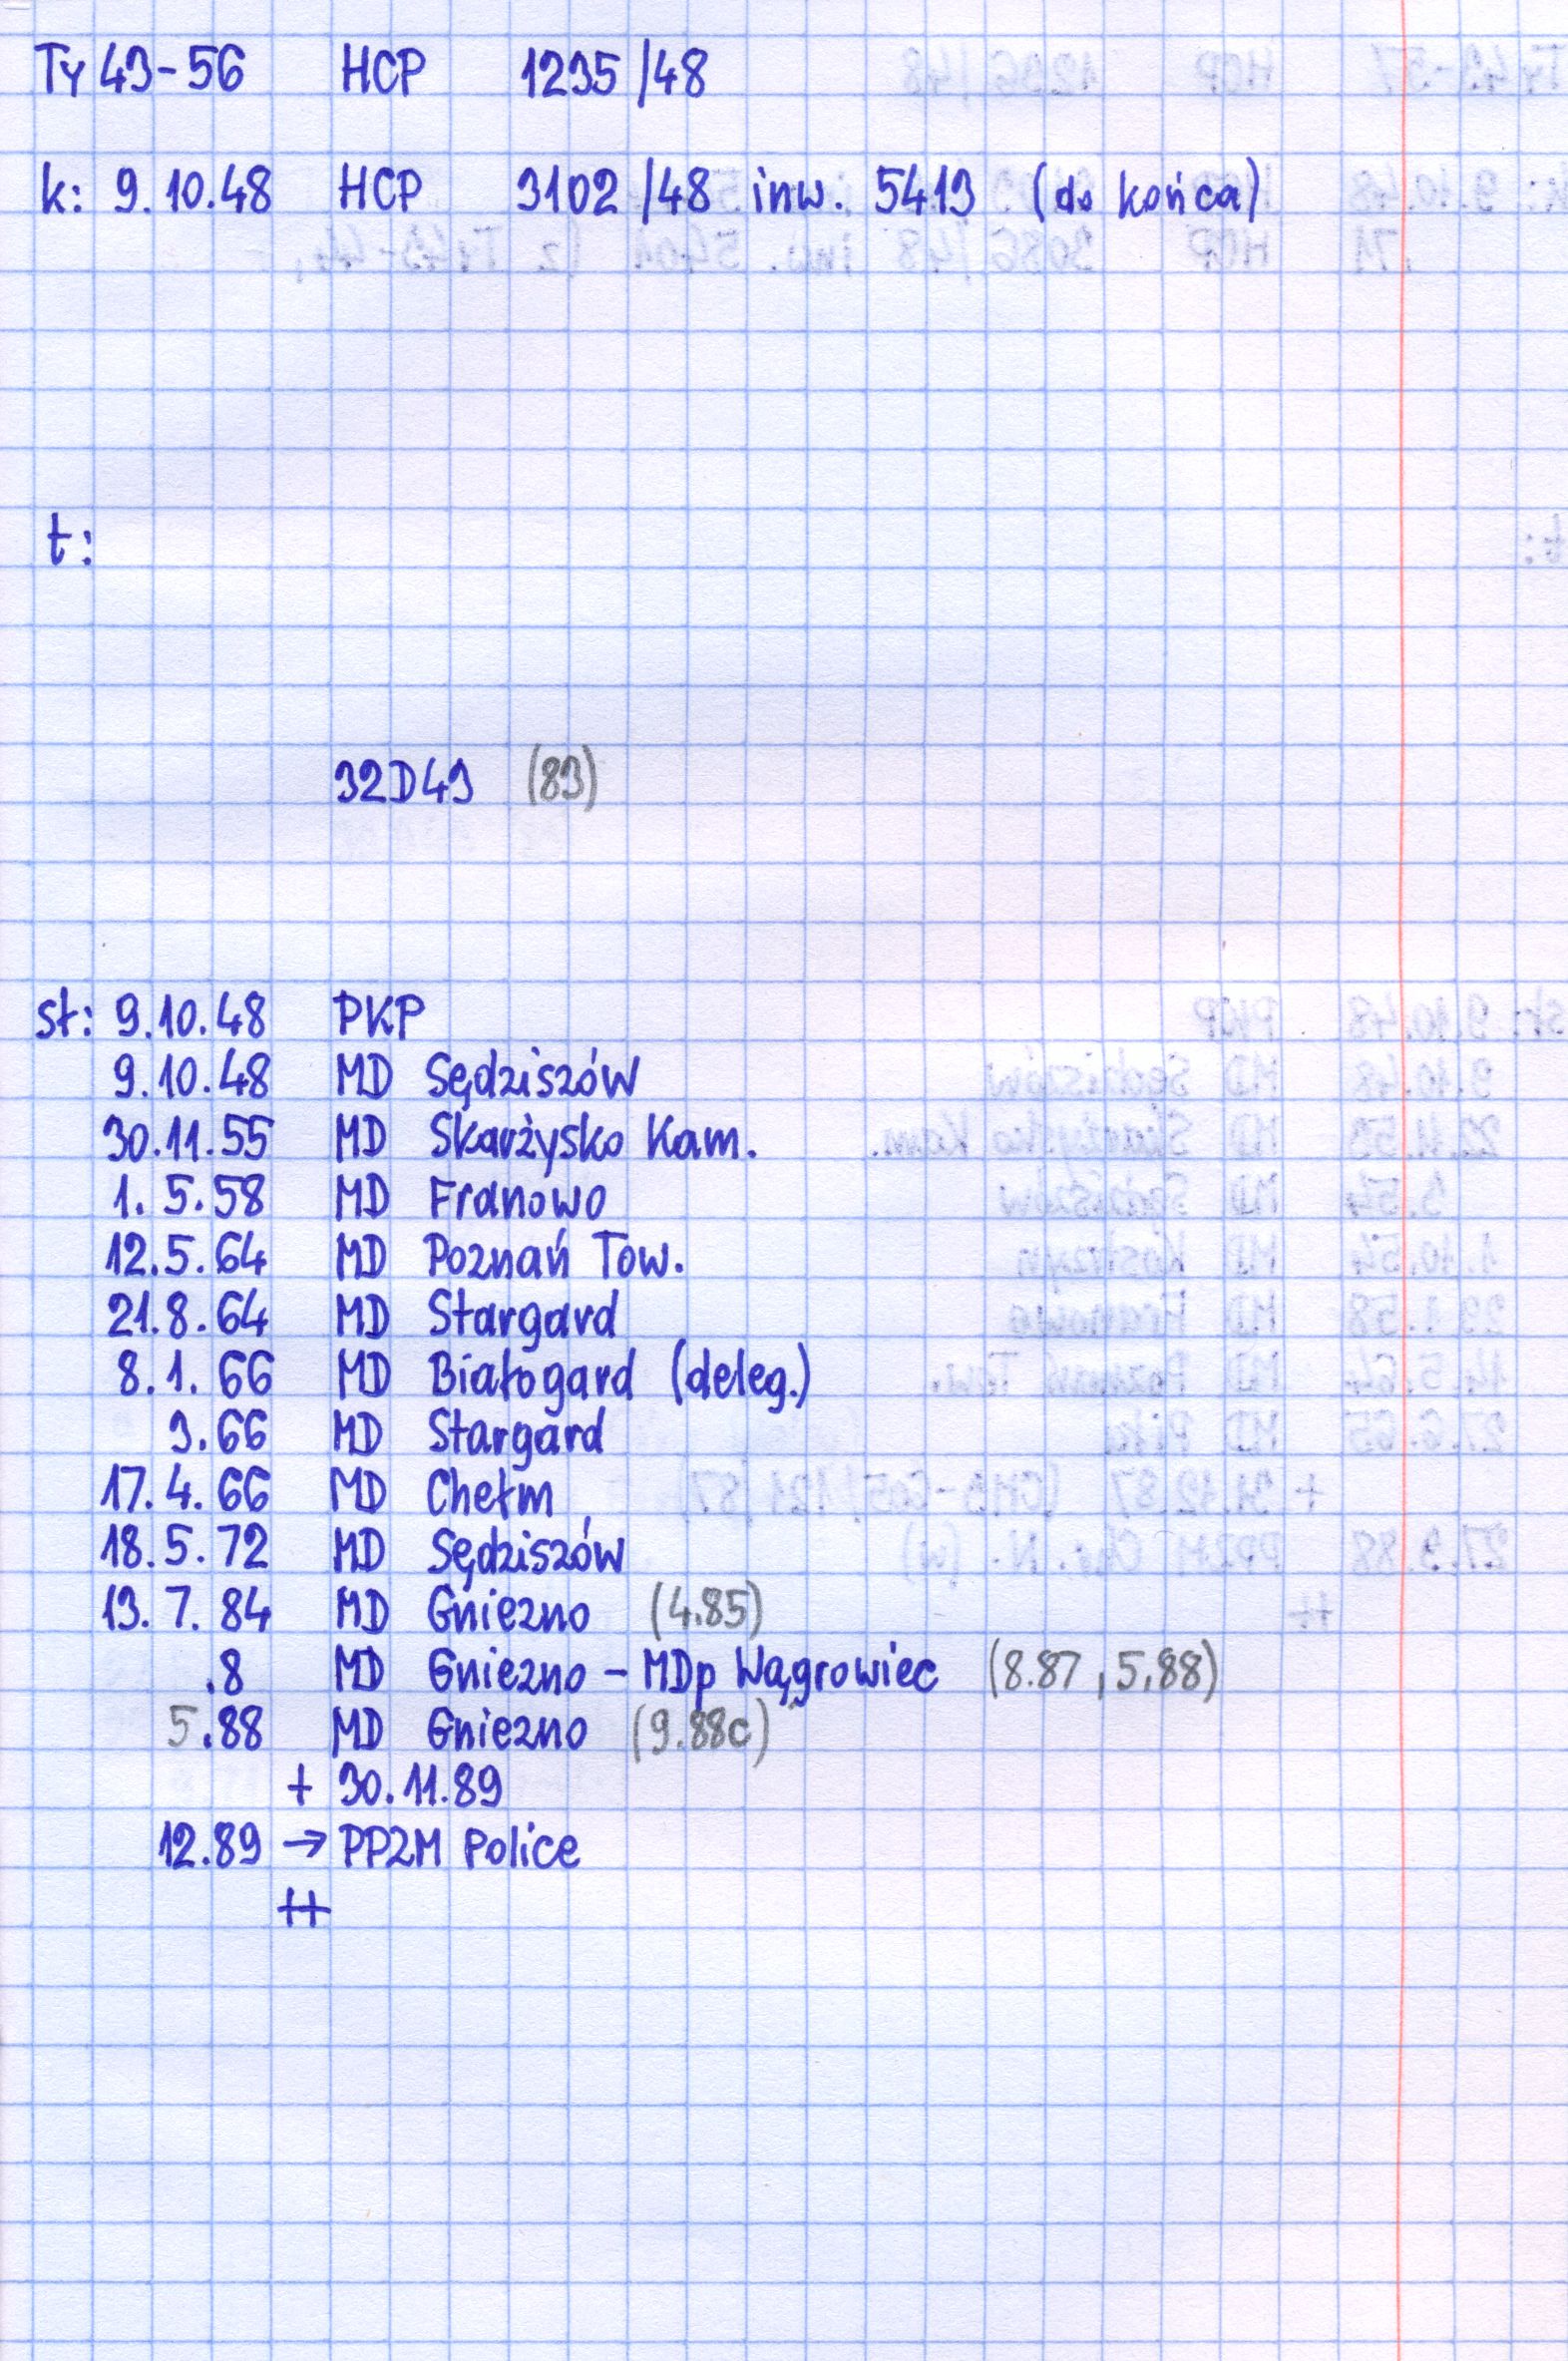 Ty 43-56 HCP 1235/48
k: 9.10.48 HCP 3102/48 inw. 5413 (do końca)
t:
32D43 (83)
st: 9.10.48 PKP
9.10.48 MD Sędziszów
30.11.55 MD Skarżysko Kam.
1.5.58 MD Franowo
12.5.64 MD Poznań Tow.
21.8.64 MD Stargard
8.1.66 MD Białogard (deleg.)
3.66 MD Stargard
17.4.66 MD Chełm
18.5.72 MD Sędziszów
13.7.84 MD Gniezno (4.85)
.8 MD Gniezno - MDp Wągrowiec (8.87, 5.88)
5.88 MD Gniezno (9.88c)
+ 30.11.89
12.89 → PPZM Police
++